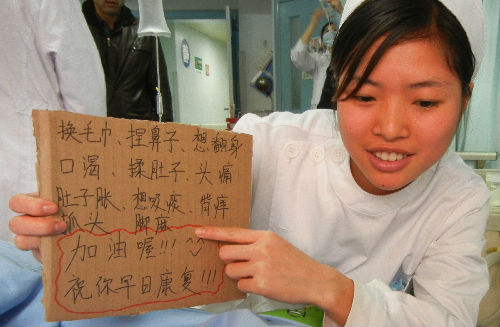 换毛巾、捏鼻子、想翻身
口渴、揉肚子、头痛
肚子胀、想吸痰、背痒
抓头、脚麻
加油喔!!! ^^
祝你早日康复!!!